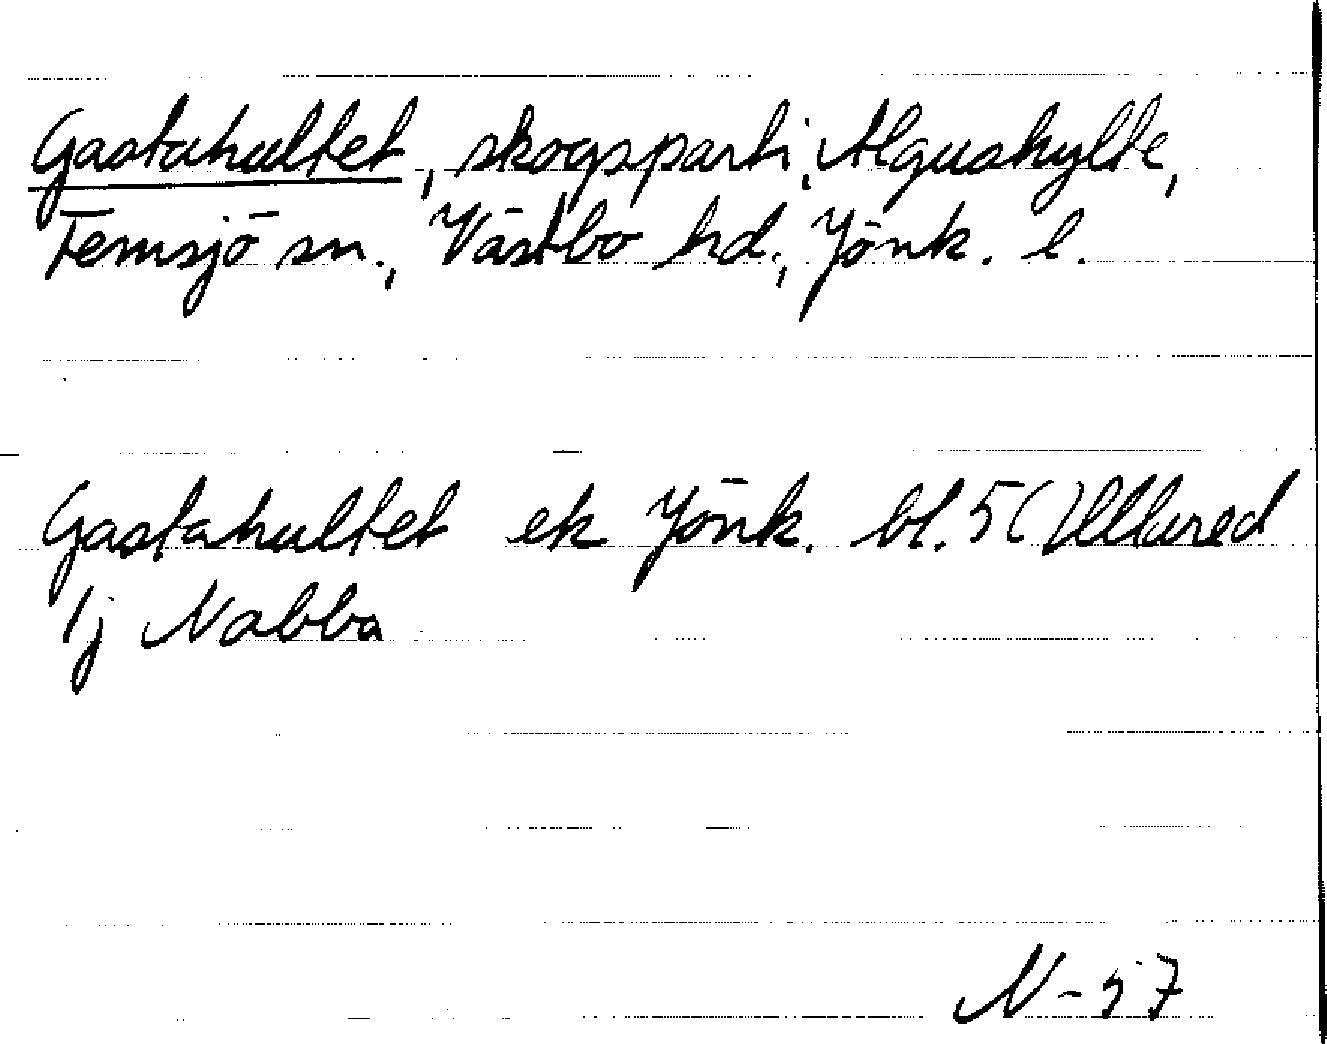 Gastahultet, skogsparti, Algushylte,
Femsjö sn., Västbo hd., Jönk. l.
Gastahultet ek Jönk. bl. 5 (Ullared
1j Nabba
N-57